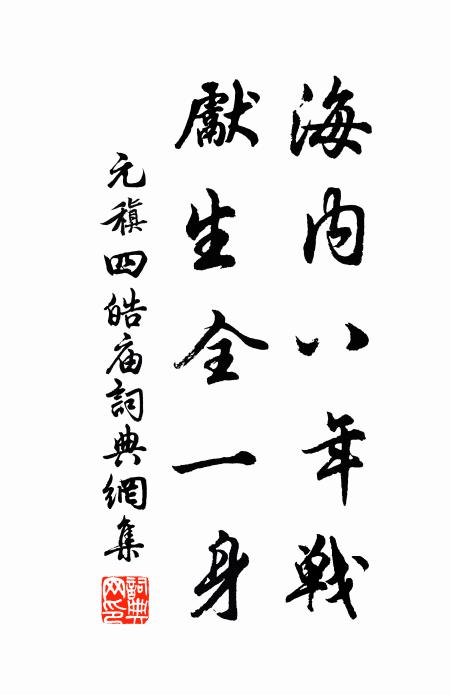 海内八年戦
獻生全一身
元稹四皓庙詞典網集
詞典网印